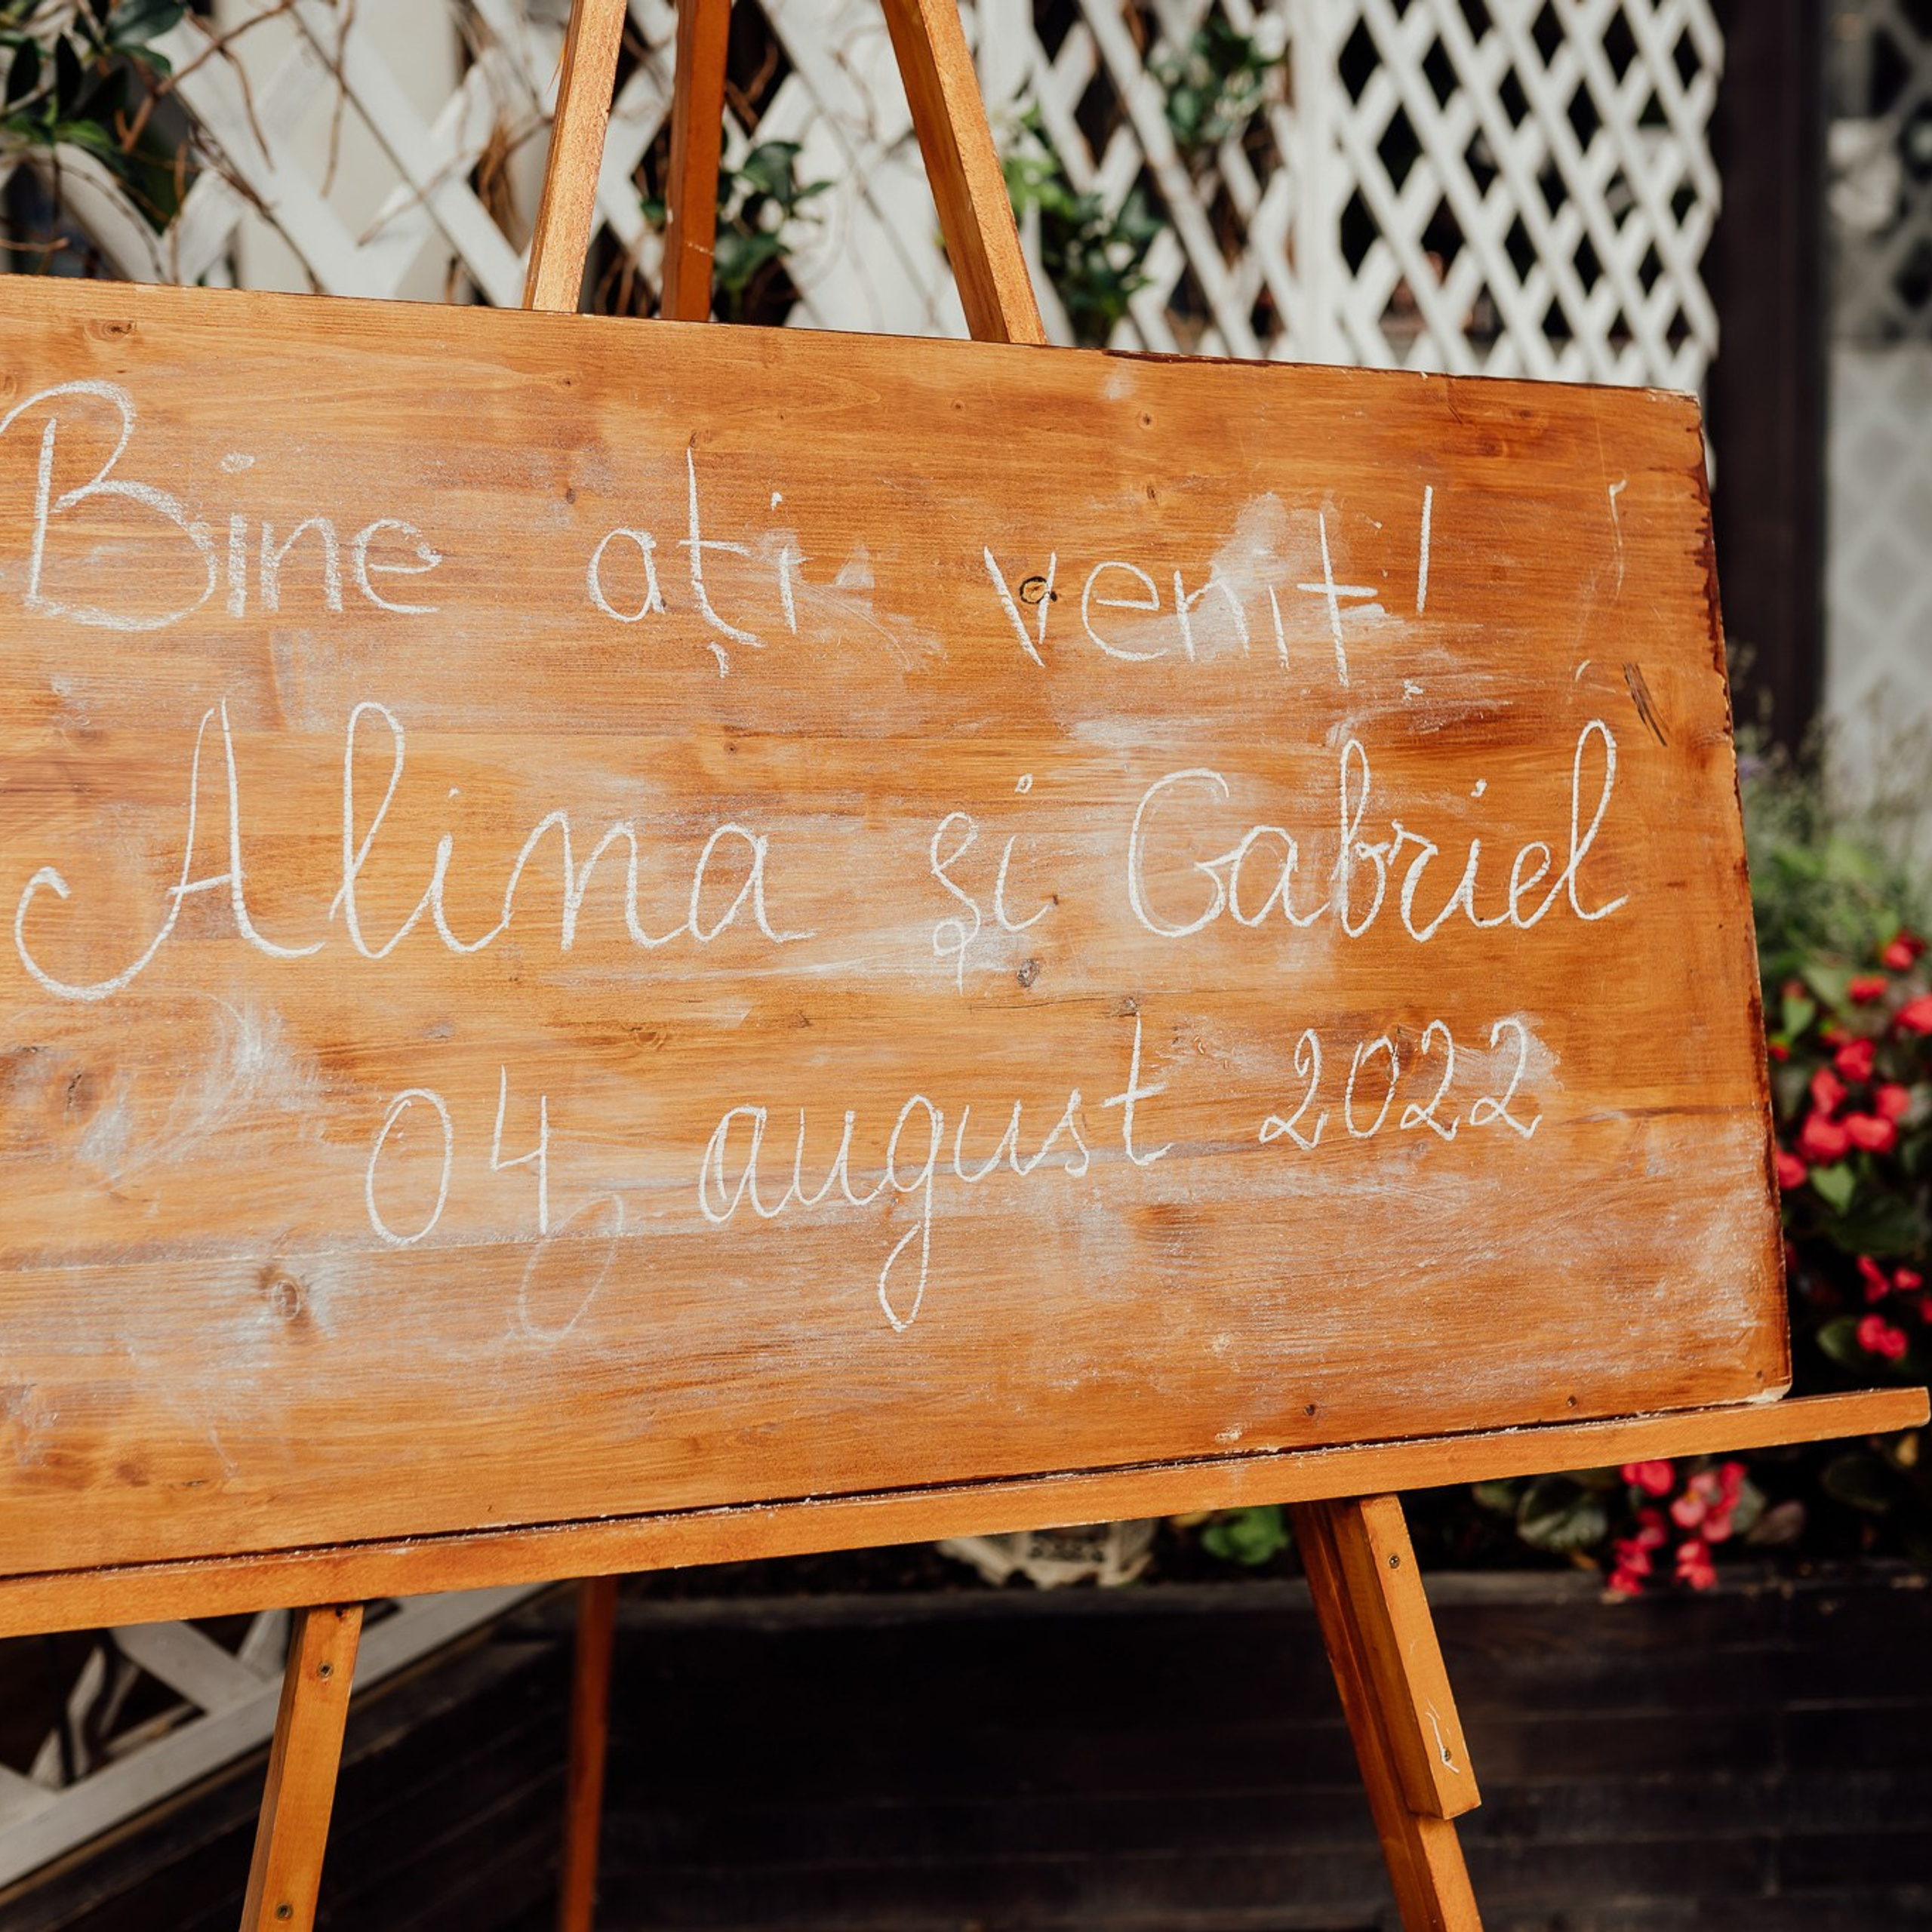 Bine ați venit!
Alina și Gabriel
04 august 2022